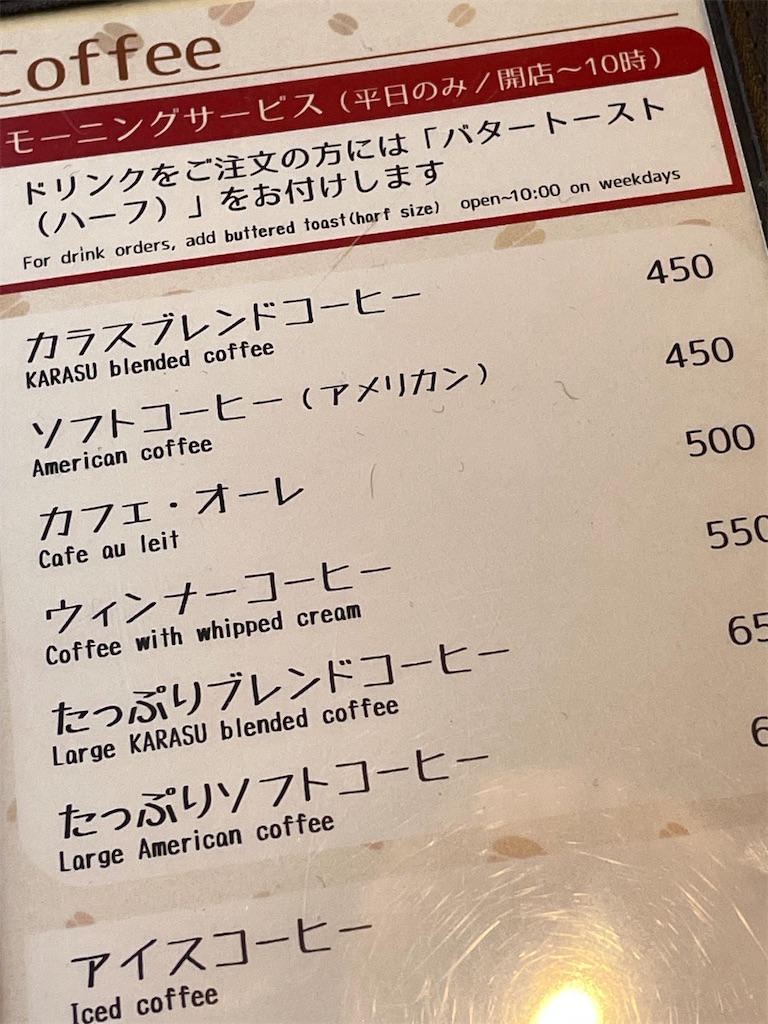 Coffee
モーニングサービス（平日のみ／開店～10時）
ドリンクをご注文の方には「バタートースト
（ハーフ）」をお付けします
For drink orders, add buttered toast(harf size) open~10:00 on weekdays
カラスブレンドコーヒー 450
KARASU blended coffee
ソフトコーヒー（アメリカン） 450
American coffee
カフェ・オーレ 500
Cafe au leit
ウィンナーコーヒー 550
Coffee with whipped cream
たっぷりブレンドコーヒー 65
Large KARASU blended coffee
たっぷりソフトコーヒー 6
Large American coffee
アイスコーヒー
Iced coffee